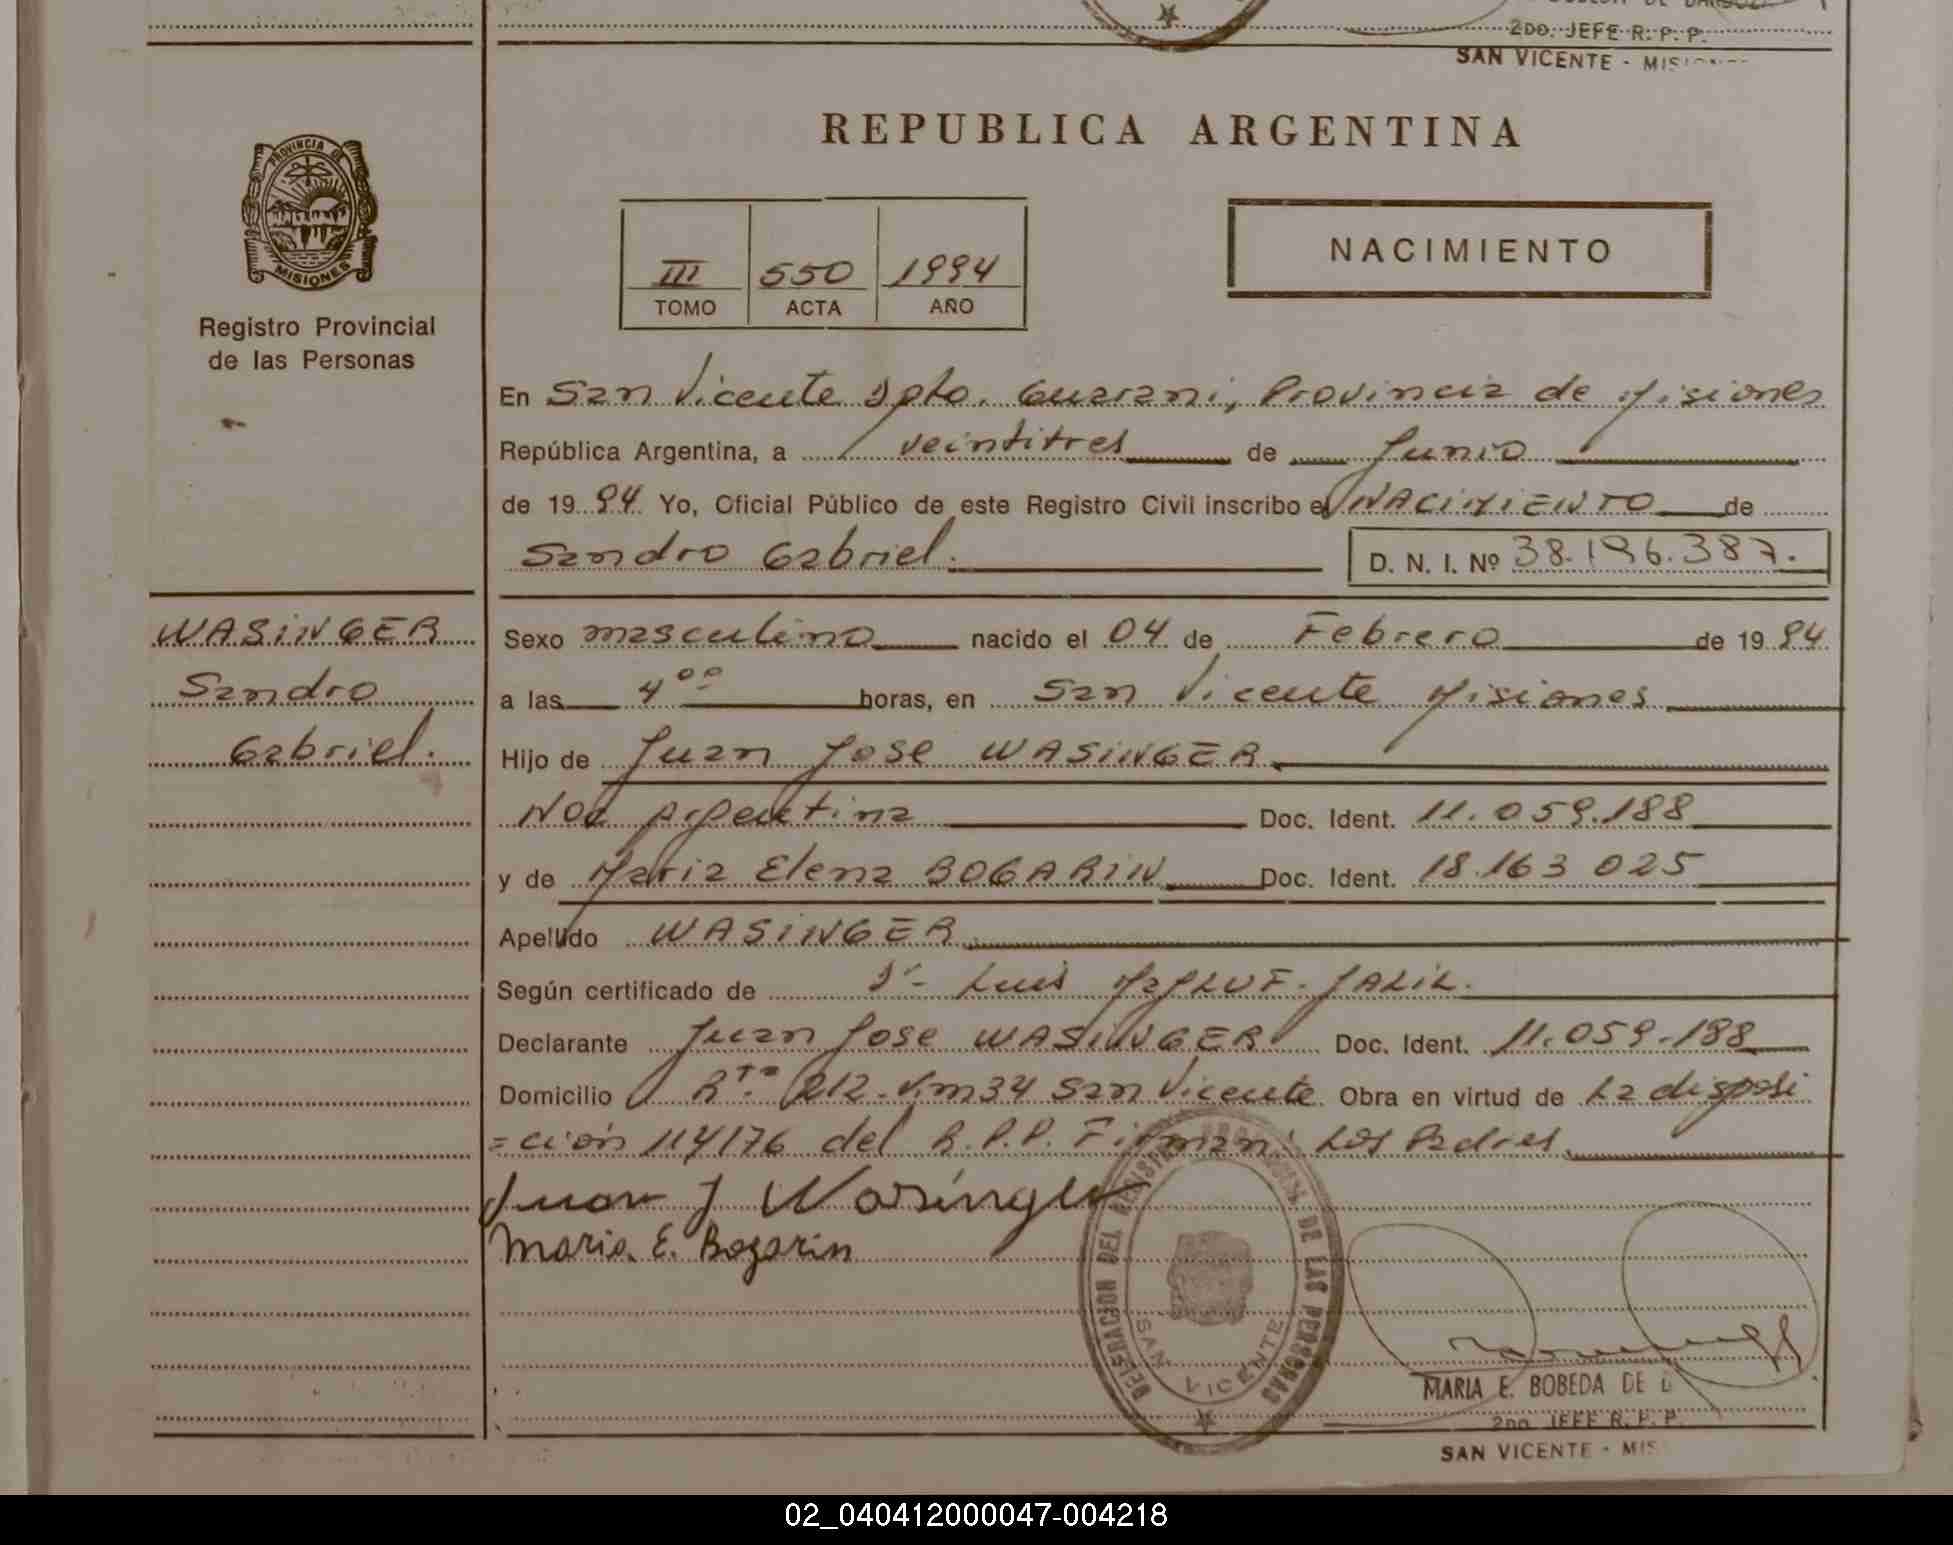 2DO. JEFE R. P. P.
SAN VICENTE - MISIONES
REPUBLICA ARGENTINA
PROVINCIA DE
MISIONES
Registro Provincial
de las Personas
III 550 1994
TOMO ACTA AÑO
NACIMIENTO
En San Vicente Dpto. Guarani, Provincia de Misiones
República Argentina, a veintitres de Junio
de 1994 Yo, Oficial Público de este Registro Civil inscribo el NACIMIENTO de
Sandro Gabriel. D. N. I. Nº 38.196.387.
WASINGER
Sandro
Gabriel.
Sexo masculino nacido el 04 de Febrero de 1994
a las 4 00 horas, en San Vicente Misiones
Hijo de Juan Jose WASINGER
Nac Argentina Doc. Ident. 11.059.188
y de Maria Elena BOGARIN Doc. Ident. 18.163 025
Apellido WASINGER
Según certificado de Dr- Luis JALIL.
Declarante Juan Jose WASINGER Doc. Ident. 11.059.188
Domicilio Rta. 212 - Km 34 San Vicente Obra en virtud de La disposi
=ción 114/76 del R.P.P. Firman: Los Padres
Juan J Wasinger
Maria. E. Bogarin
DELEGACION DEL REGISTRO PROVINCIAL DE LAS PERSONAS
SAN VICENTE
MARIA E. BOBEDA DE
2DO. JEFE R. P. P.
SAN VICENTE - MIS
02_040412000047-004218